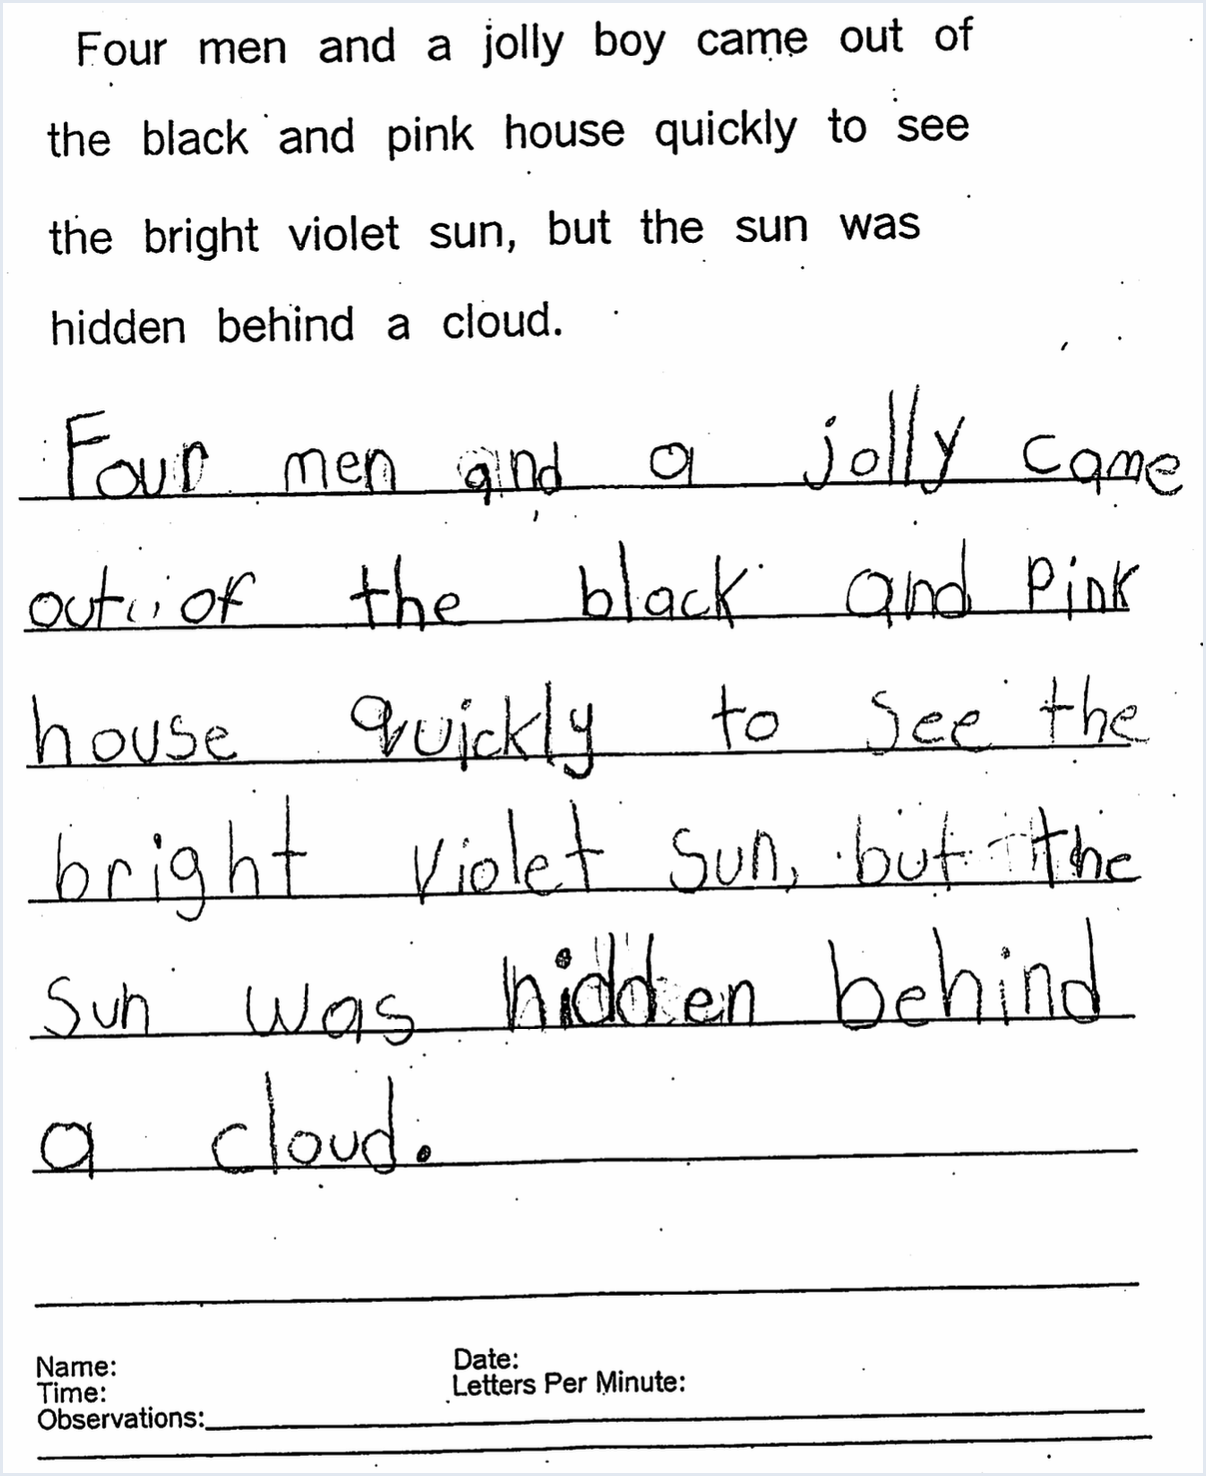 Four men and a jolly boy came out of
the black and pink house quickly to see
the bright violet sun, but the sun was
hidden behind a cloud.
Four men and a jolly came
out of the black and Pink
house quickly to see the
bright violet sun, but the
sun was hidden behind
a cloud.
Name: Date:
Time: Letters Per Minute:
Observations: